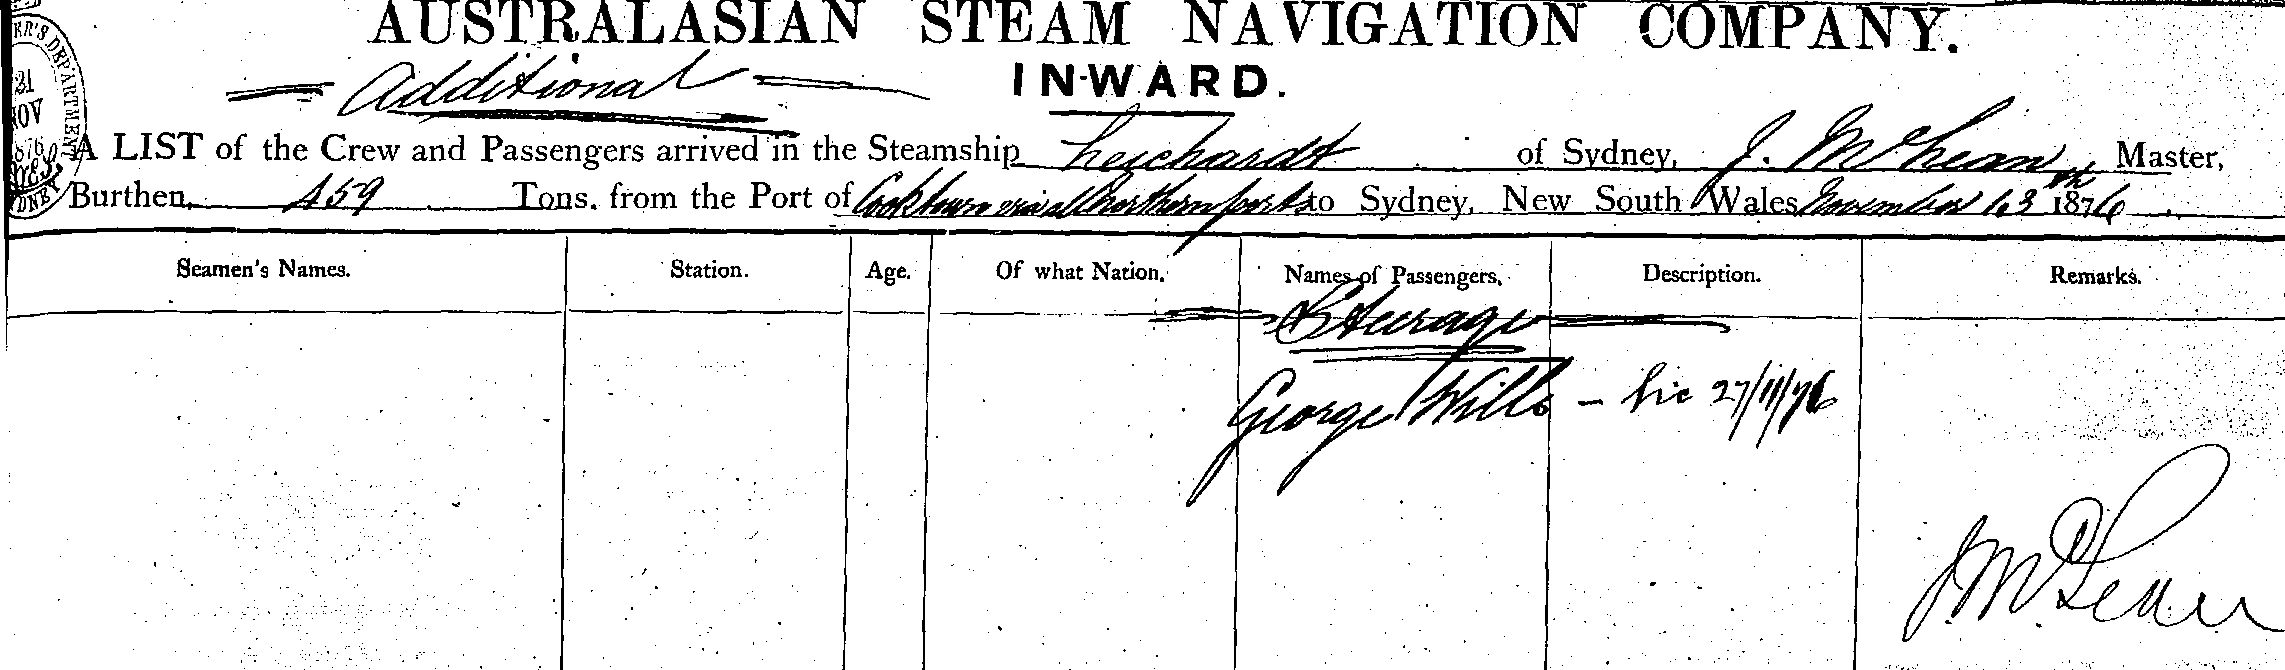 AUSTRALASIAN STEAM NAVIGATION COMPANY.
Additional INWARD.
ER'S DEPARTMENT
NOV
A LIST of the Crew and Passengers arrived in the Steamship Leichardt of Sydney, J. McLean, Master,
Burthen, 459 Tons, from the Port of Cooktown via all Northern ports to Sydney, New South Wales, November 1876
Seamen's Names. Station. Age. Of what Nation. Names of Passengers. Description. Remarks.
Steerage
George Wills - 27/11/76
J. McLean